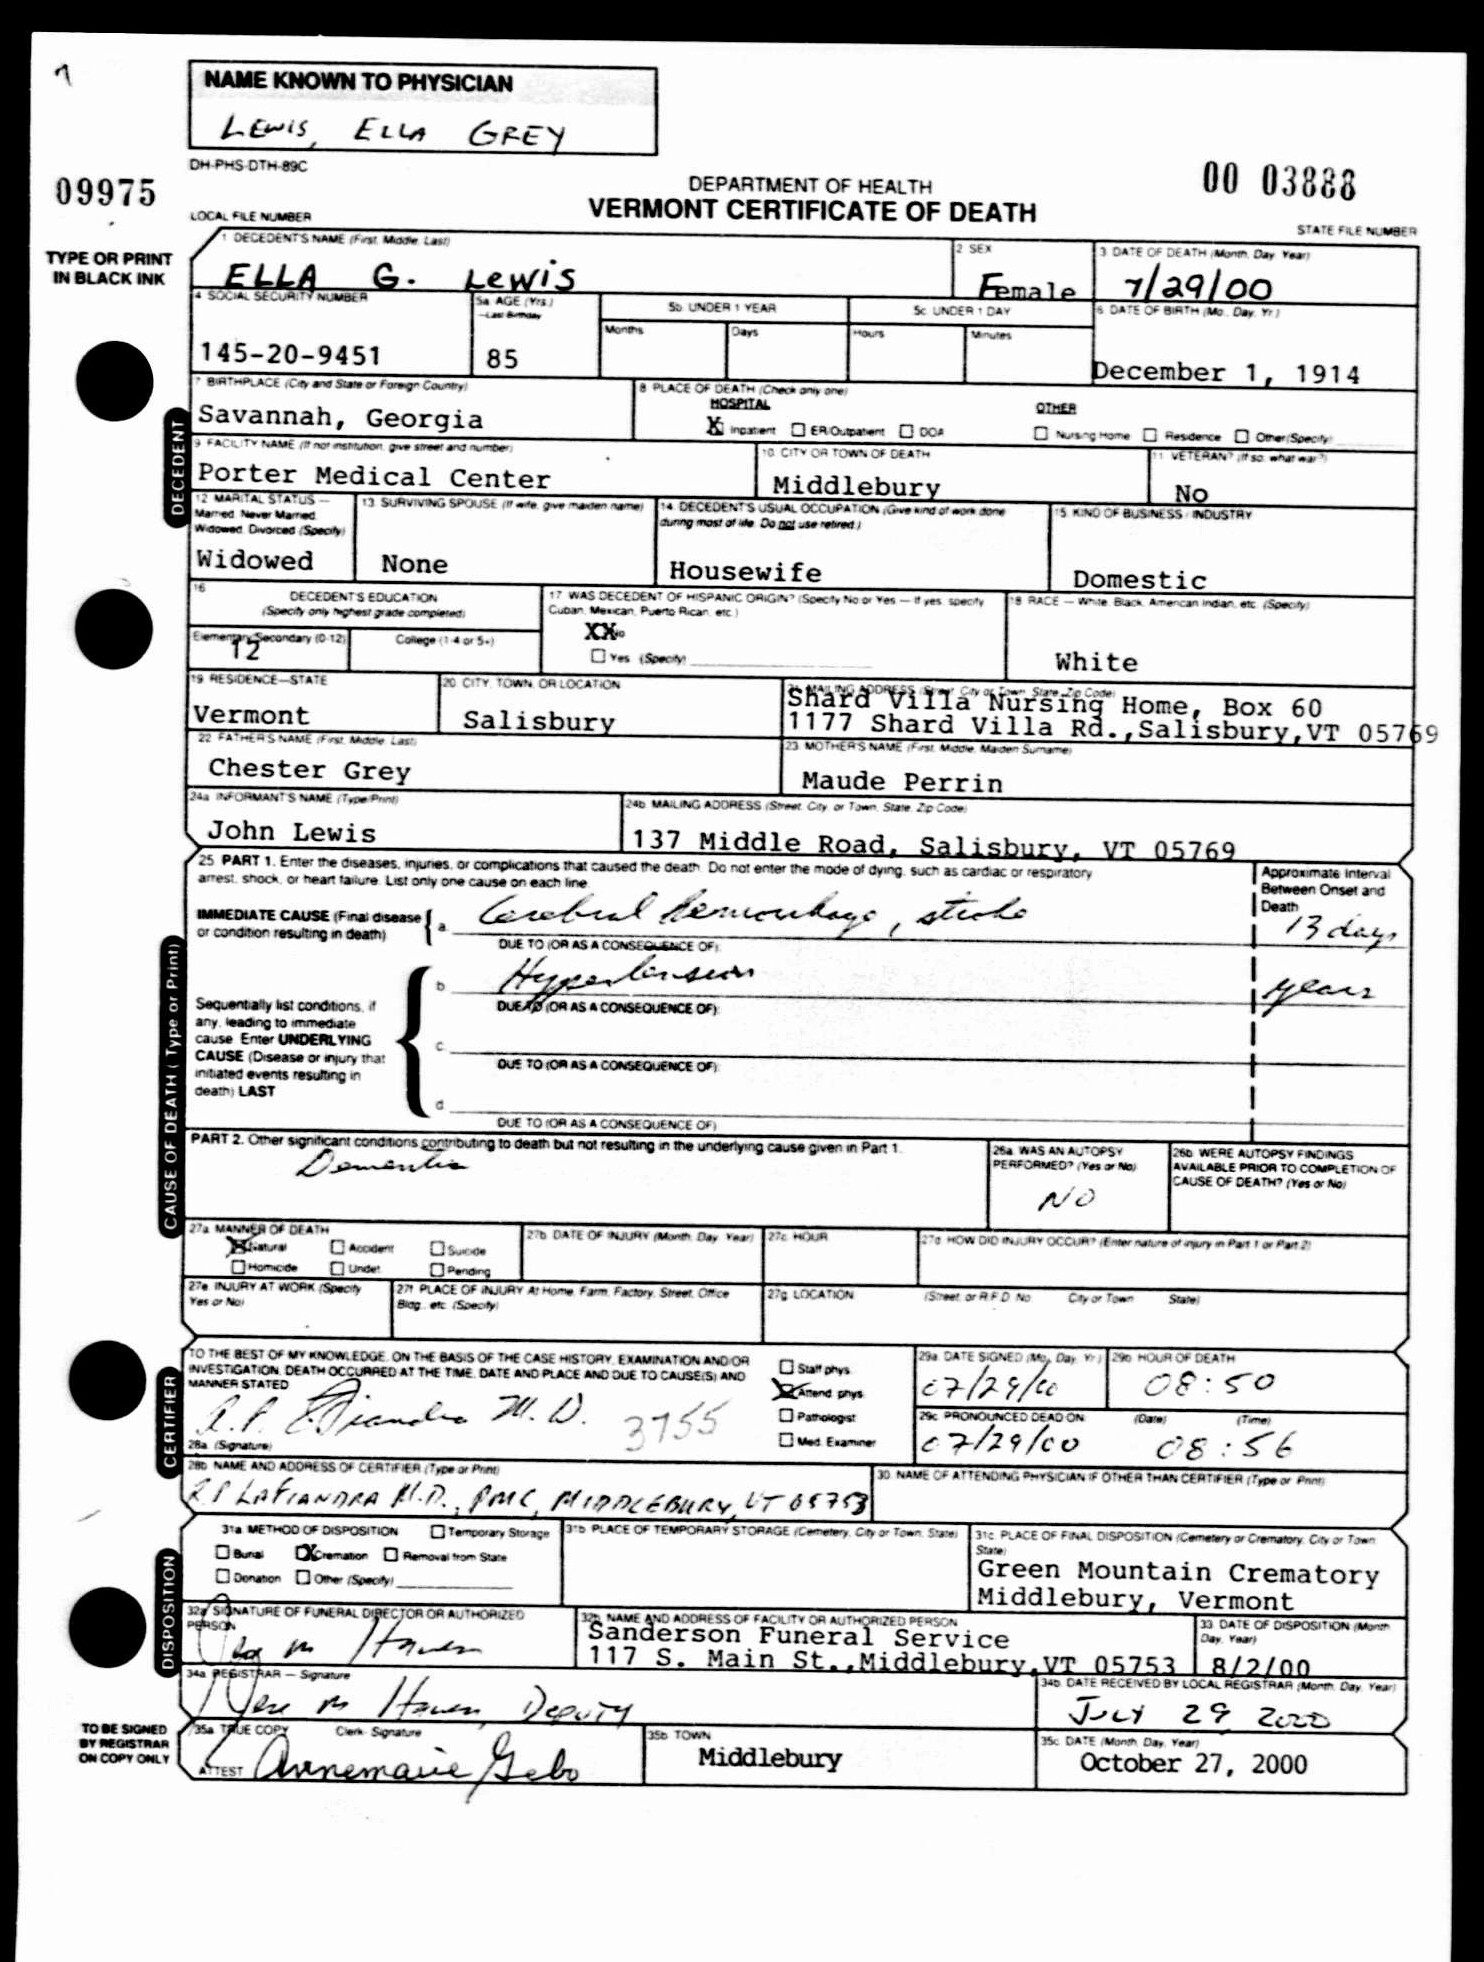 7
NAME KNOWN TO PHYSICIAN
LEWIS, ELLA GREY
DH-PHS-DTH-89C
09975
00 03888
DEPARTMENT OF HEALTH
VERMONT CERTIFICATE OF DEATH
LOCAL FILE NUMBER
STATE FILE NUMBER
TYPE OR PRINT
IN BLACK INK
1 DECEDENT'S NAME (First, Middle, Last)
ELLA G. LEWIS
2 SEX
Female
3 DATE OF DEATH (Month, Day, Year)
7/29/00
4 SOCIAL SECURITY NUMBER
145-20-9451
5a AGE (Yrs.)
—Last Birthday
85
5b UNDER 1 YEAR
Months
Days
5c UNDER 1 DAY
Hours
Minutes
6 DATE OF BIRTH (Mo., Day, Yr.)
December 1, 1914
DECEDENT
7 BIRTHPLACE (City and State or Foreign Country)
Savannah, Georgia
8 PLACE OF DEATH (Check only one)
HOSPITAL
X Inpatient
ER/Outpatient
DOA
OTHER
Nursing Home
Residence
Other (Specify)
9 FACILITY NAME (If not institution, give street and number)
Porter Medical Center
10 CITY OR TOWN OF DEATH
Middlebury
11 VETERAN? (If so, what war?)
No
12 MARITAL STATUS —
Married, Never Married,
Widowed, Divorced (Specify)
Widowed
13 SURVIVING SPOUSE (If wife, give maiden name)
None
14 DECEDENT'S USUAL OCCUPATION (Give kind of work done
during most of life. Do not use retired.)
Housewife
15 KIND OF BUSINESS / INDUSTRY
Domestic
16
DECEDENT'S EDUCATION
(Specify only highest grade completed)
Elementary/Secondary (0-12)
12
College (1-4 or 5+)
17 WAS DECEDENT OF HISPANIC ORIGIN? (Specify No or Yes — If yes, specify
Cuban, Mexican, Puerto Rican, etc.)
XX No
Yes (Specify)
18 RACE — White, Black, American Indian, etc. (Specify)
White
19 RESIDENCE—STATE
Vermont
20 CITY, TOWN, OR LOCATION
Salisbury
21 MAILING ADDRESS (Street, City or Town, State, Zip Code)
Shard Villa Nursing Home, Box 60
1177 Shard Villa Rd.,Salisbury,VT 05769
22 FATHER'S NAME (First, Middle, Last)
Chester Grey
23 MOTHER'S NAME (First, Middle, Maiden Surname)
Maude Perrin
24a INFORMANT'S NAME (Type/Print)
John Lewis
24b MAILING ADDRESS (Street, City, or Town, State, Zip Code)
137 Middle Road, Salisbury, VT 05769
CAUSE OF DEATH (Type or Print)
25 PART 1. Enter the diseases, injuries, or complications that caused the death. Do not enter the mode of dying, such as cardiac or respiratory
arrest, shock, or heart failure. List only one cause on each line.
Approximate Interval
Between Onset and
Death
IMMEDIATE CAUSE (Final disease
or condition resulting in death)
a. Cerebral hemorrhage, stroke
13 days
DUE TO (OR AS A CONSEQUENCE OF):
b Hypertension
years
DUE TO (OR AS A CONSEQUENCE OF):
Sequentially list conditions, if
any, leading to immediate
cause. Enter UNDERLYING
CAUSE (Disease or injury that
initiated events resulting in
death) LAST
c
DUE TO (OR AS A CONSEQUENCE OF):
d
DUE TO (OR AS A CONSEQUENCE OF)
PART 2. Other significant conditions contributing to death but not resulting in the underlying cause given in Part 1.
Dementia
26a WAS AN AUTOPSY
PERFORMED? (Yes or No)
NO
26b WERE AUTOPSY FINDINGS
AVAILABLE PRIOR TO COMPLETION OF
CAUSE OF DEATH? (Yes or No)
27a MANNER OF DEATH
X Natural
Accident
Suicide
Homicide
Undet.
Pending
27b DATE OF INJURY (Month, Day, Year)
27c HOUR
27d HOW DID INJURY OCCUR? (Enter nature of injury in Part 1 or Part 2)
27e INJURY AT WORK (Specify
Yes or No)
27f PLACE OF INJURY At Home, Farm, Factory, Street, Office
Bldg., etc. (Specify)
27g LOCATION
(Street, or R.F.D. No.
City or Town
State)
CERTIFIER
TO THE BEST OF MY KNOWLEDGE, ON THE BASIS OF THE CASE HISTORY, EXAMINATION AND/OR
INVESTIGATION, DEATH OCCURRED AT THE TIME, DATE AND PLACE AND DUE TO CAUSE(S) AND
MANNER STATED
R.P. LaFiandra M.D. 3755
28a (Signature)
Staff phys.
X Attend. phys.
Pathologist
Med. Examiner
29a DATE SIGNED (Mo., Day, Yr.)
07/29/00
29b HOUR OF DEATH
08:50
29c PRONOUNCED DEAD ON:
(Date)
(Time)
07/29/00
08:56
28b NAME AND ADDRESS OF CERTIFIER (Type or Print)
R.P LAFIANDRA M.D., PMC, MIDDLEBURY, VT 05753
30 NAME OF ATTENDING PHYSICIAN IF OTHER THAN CERTIFIER (Type or Print)
DISPOSITION
31a METHOD OF DISPOSITION
Temporary Storage
Burial
X Cremation
Removal from State
Donation
Other (Specify)
31b PLACE OF TEMPORARY STORAGE (Cemetery, City or Town, State)
31c PLACE OF FINAL DISPOSITION (Cemetery or Crematory, City or Town,
State)
Green Mountain Crematory
Middlebury, Vermont
32a SIGNATURE OF FUNERAL DIRECTOR OR AUTHORIZED
PERSON
32b NAME AND ADDRESS OF FACILITY OR AUTHORIZED PERSON
Sanderson Funeral Service
117 S. Main St.,Middlebury,VT 05753
33 DATE OF DISPOSITION (Month,
Day, Year)
8/2/00
34a REGISTRAR — Signature
DEPUTY
34b DATE RECEIVED BY LOCAL REGISTRAR (Month, Day, Year)
JULY 29, 2000
TO BE SIGNED
BY REGISTRAR
ON COPY ONLY
35a TRUE COPY
Clerk- Signature
ATTEST Annemarie Gebo
35b TOWN
Middlebury
35c DATE (Month, Day, Year)
October 27, 2000